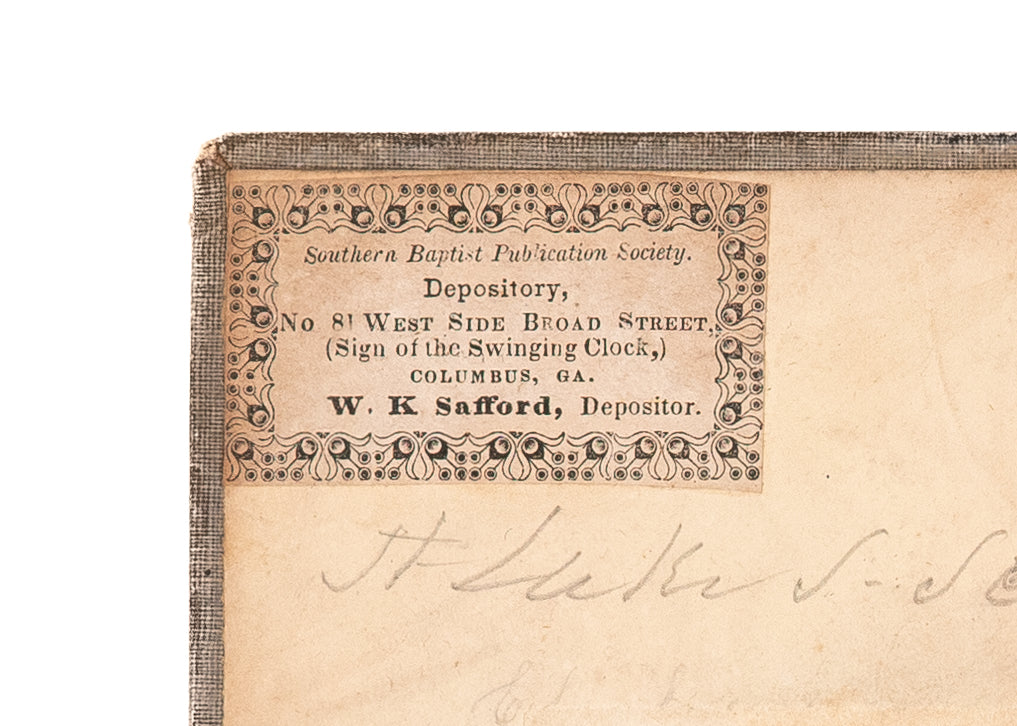 Southern Baptist Publication Society.
Depository,
No 81 WEST SIDE BROAD STREET,
(Sign of the Swinging Clock,)
COLUMBUS, GA.
W. K Safford, Depositor.
St Lukes S-